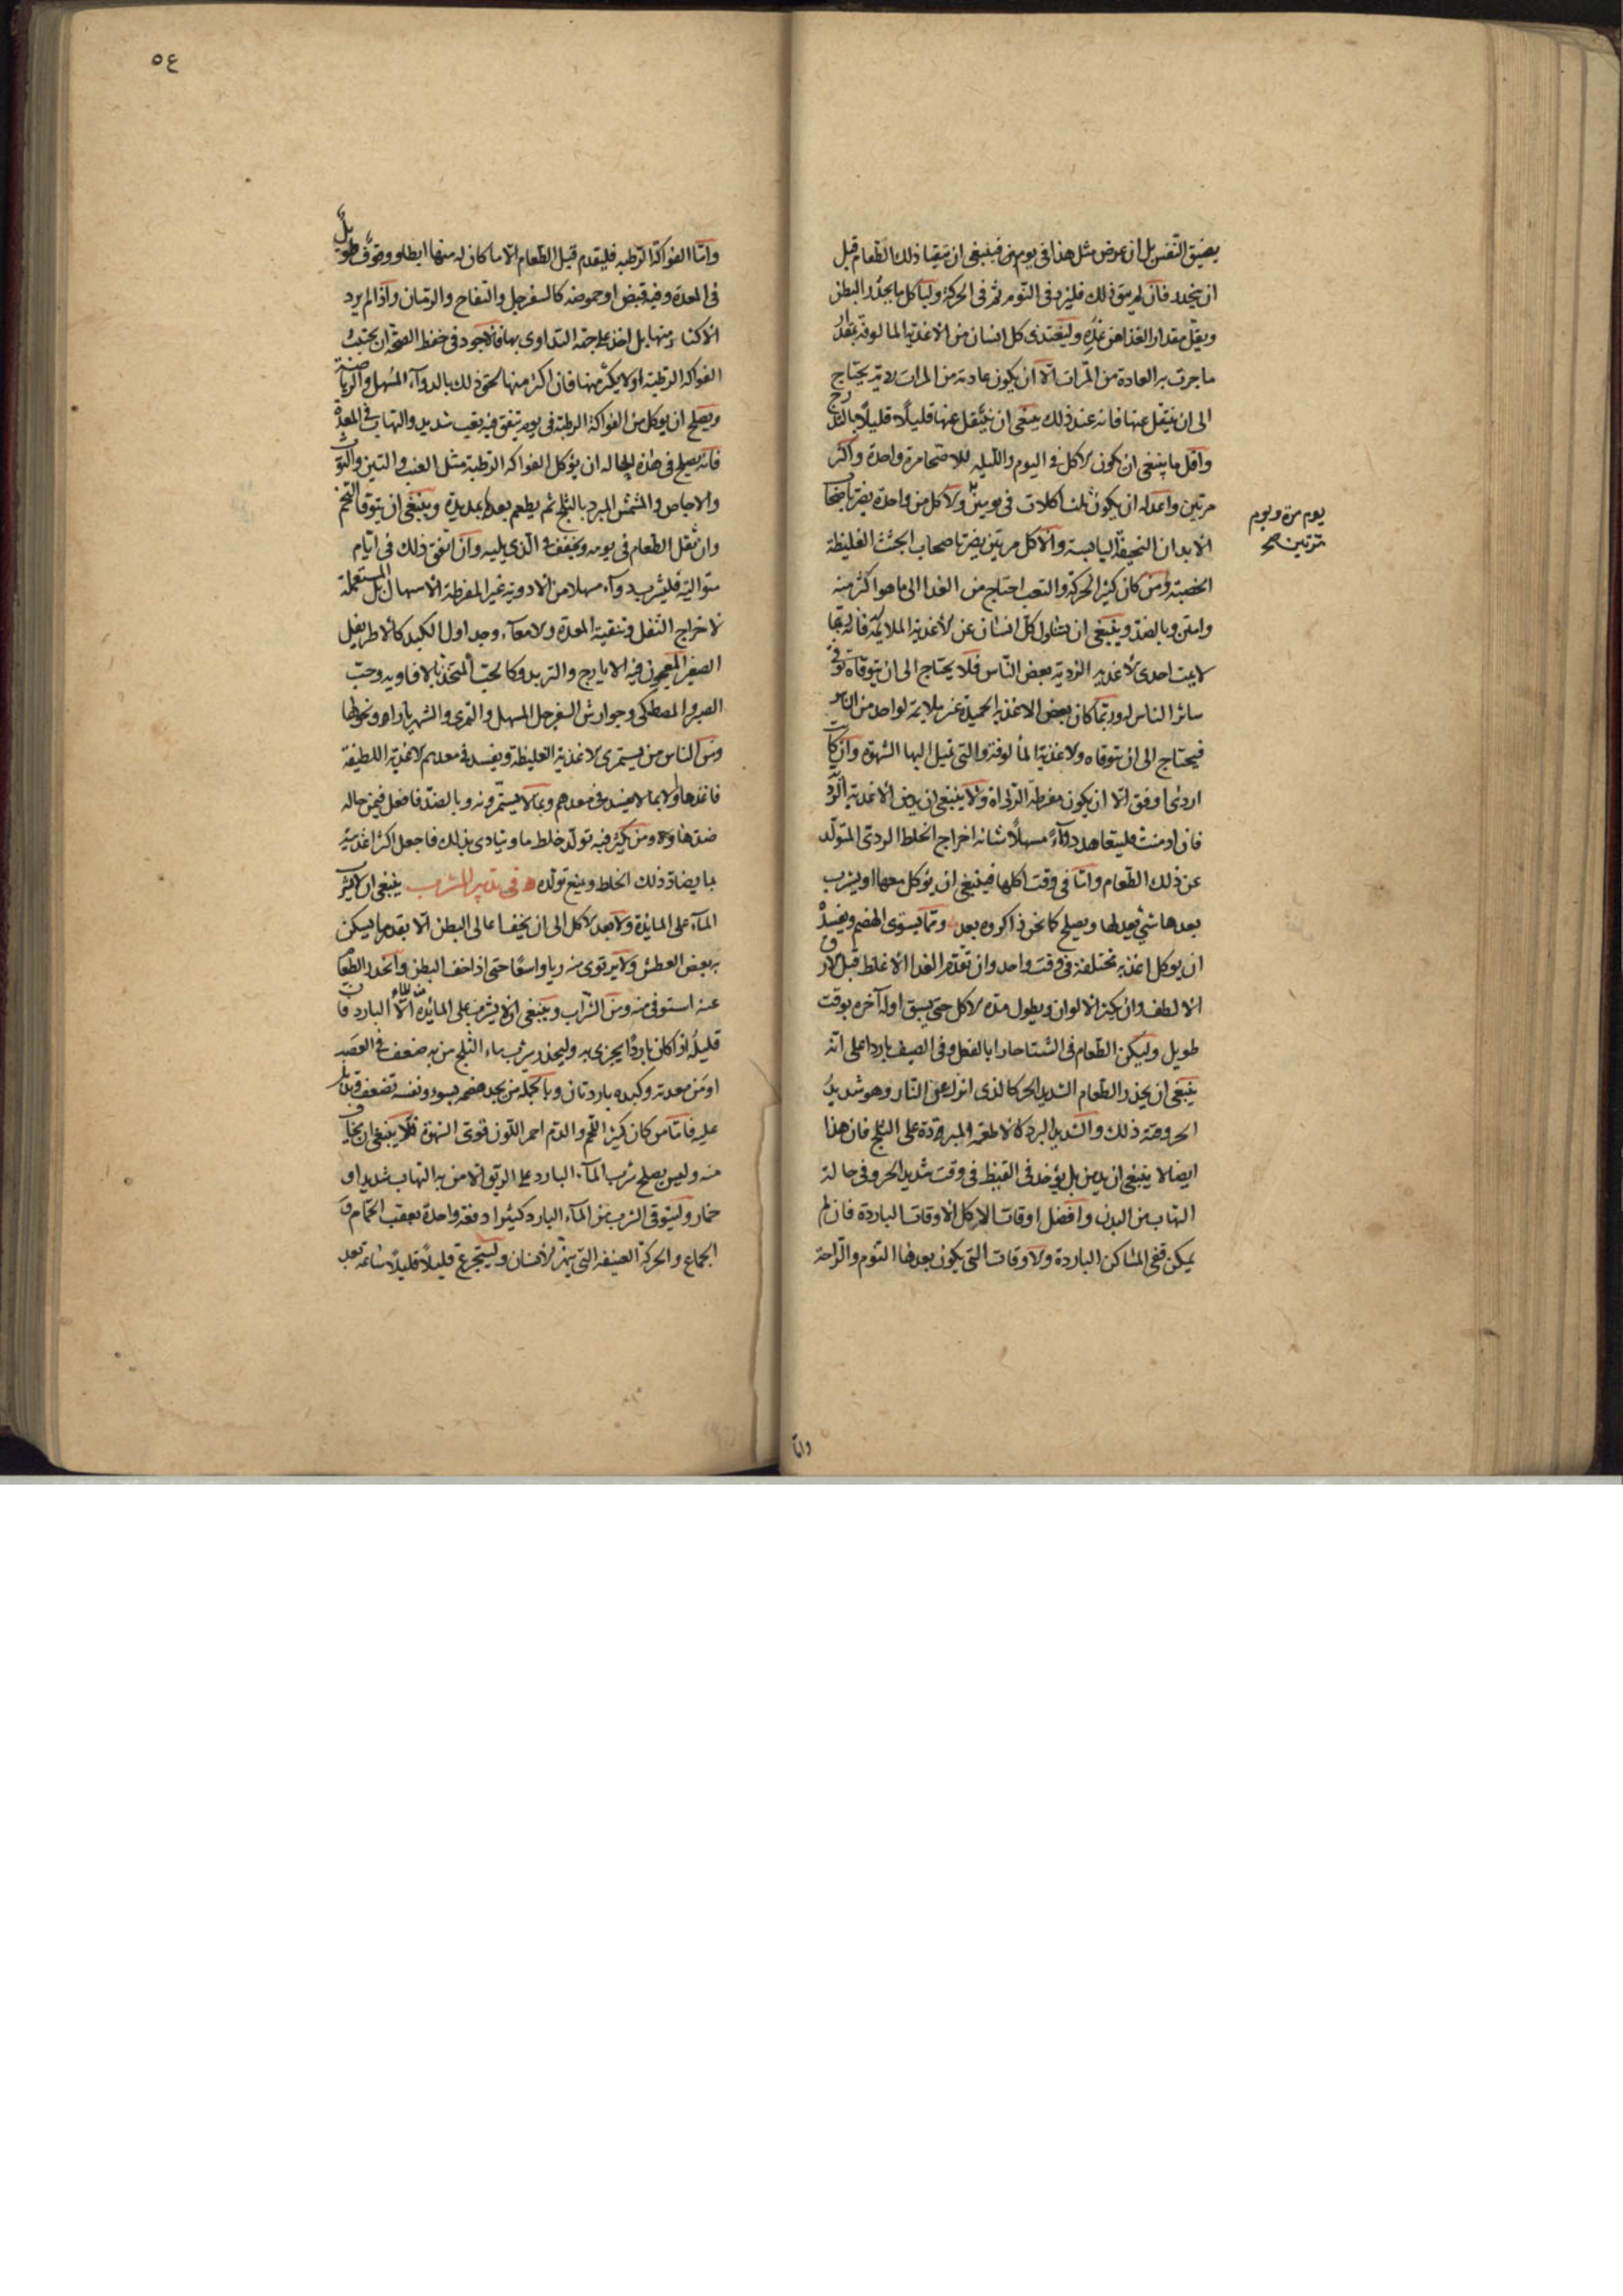 يضيق النفس بل ان عرض مثل هذا فى يوم من فينبغى ان يتقيا ذلك الطعام قبل
ان ينحدر فان لم يتق ذلك فليزد فى النوم ثم فى الحركة وليأكل ما يحدر البطن
ويقل مقدار الغذا من غده وليغتدى كل انسان من الاغذية المالوفة بقدر
ما جرت به العادة من المرات الا ان يكون عادته من المرات ردية يحتاج
الى ان ينتقل عنها فانه عند ذلك ينبغى ان ينتقل عنها قليلا قليلا بالتدرج
واقل ما ينبغى ان يكون الاكل فى اليوم والليله للاصحا مرة واحدة واكثر
مرتين واعدله ان يكون ثلث اكلات فى يومين والاكل من واحدة يضر باصحاب
يوم مرة ويوم
مرتين صح
الابدان النحيفة اليابسة والاكل مرتين يضر باصحاب الجثث الغليظة
الخصبة ومن كان كثير الحركة والتعب احتاج من الغدا الى ما هو اكثر منه
وامتن وبالضد وينبغى ان يتناول كل انسان من الاغذية الملايمة فانه ربما
لايمت احدى الاغذيه الردية بعض الناس فلا يحتاج الى ان يتوقاه توقى
سائر الناس له وربما كان بعض الاغذيه الحميدة غير ملايمة لواحد من الناس
فيحتاج الى ان يتوقاه والاغذية المألوفة والتى تميل اليها الشهوة وان كا
اردئ اوفق الا ان يكون مفرطة الرداة ولا ينبغى ان يدمن الاغذية الرد
فان ادمنت فليتعاهد دوآءً مسهلاً شانه اخراج الخلط الردى المتولد
عن ذلك الطعام واما فى وقت اكلها فينبغى ان يؤكل معها او يشرب
بعدها شئ يعدلها ويصلح كما نحن ذاكروه بعد ومما يسوى الهضم ويفسده
ان يوكل اغذيه مختلفة فى وقت واحد وان تقدم الغدا الاغلظ قبل الارق
الالطف وان يكثر الالوان ويطول مدة الاكل حتى يسبق اوله آخره بوقت
طويل وليكن الطعام فى الشتا حارا بالفعل وفى الصيف باردا على انه
ينبغى ان يحذر الطعام الشديد الحر كالذى انزل عن النار وهو شديد
الحر وقته ذلك والشديد البرد كالاطعمه المبرودة على الثلج فان هذا
ايضا لا ينبغى ان يدمن بل يؤخذ فى القيظ فى وقت شديد الحر وفى حالة
التهاب من البدن وافضل اوقات الاكل الاوقات الباردة فان لم
يمكن ففى المساكن الباردة والاوقات التى يكون بعدها النوم والراحة
واما
٥٤
واما الفواكة الرطبه فليقدم قبل الطعام الا ما كان له منها ابطاء ووقوف طويل
فى المعدة وفيه قبض او حموضه كالسفرجل والتفاح والرمان واذا لم يرد
الاكثار منها بل اخذ على جهة التداوى بها فالاجود فى حفظ الصحة ان يجتنب
الفواكه الرطبة او لا يكثر منها فان اكثر منها لحق ذلك بالدوآء المسهل والرياضة
ويصلح ان يوكل من الفواكة الرطبة فى يوم يتفق فيه تعب شديد والتهاب فى المعدة
فانه يصلح فى هذه الحاله ان يؤكل الفواكه الرطبة مثل العنب والتين والتوت
والاجاص والمشمش المبرد بالثلج ثم يطعم بعدها بمديدة وينبغى ان يتوقا التخم
وان ثقل الطعام فى يومه ويخفف فى الذى يليه وان اتفق ذلك فى ايام
متوالية فليشرب دوآء مسهلا من الادوية غير المفرطة الاسهال بل المستعملة
لاخراج الثفل وتنقية المعدة والامعآء وجداول الكبد كالاطريفل
الصغير المعجون فيه الايارج والتربد وكالحب المتخذ بالافاويه وحب
الصبر والمصطكى وجوارش السفرجل المسهل والتمرى والشهرياران ونحوها
ومن الناس من يستمرى الاغذية الغليظة ويفسد فى معدتهم الاغذية اللطيفة
فاغذ هاولا بما لا يفسد فى معدهم وبما لا يستمرونه وبالضد فافعل فيمن حاله
ضد هاولاء ومن يكثر فيه تولد خلط ما ويتادى بذلك فاجعل اكثر اغذيته
بما يضاد ذلك الخلط ويمنع تولده فى تدبير المشرب ينبغى ان لا يشرب
المآء على المايدة ولا بعد الاكل الى ان يخف اعالى البطن الا بقدر ما يسكن
به بعض العطش ولا يرتوى منه ريا واسعا حتى اذا خف البطن وانحدر الطعام
عنه استوفى منه ومن الشراب وينبغى ان لا يشرب على المائدة من الماء الا البارد فان
قليله اذا كان باردًا يجزى به وليحذر شرب ماء الثلج من به ضعف فى العصب
او من معدته وكبده باردتان وبالجملة من يجد هضمه يسوء ونفسه تضعف
عليه فامّا من كان كثير اللحم والدم احمر اللون قوى الشهوة فلا ينبغى ان يخاف
منه وليس يصلح شرب المآء البارد على الريق الا من به التهاب شديد او
خمار وليتوقى الشرب من المآء البارد كثيرا دفعة واحدة بعقب الحمام و
الجماع والحركة العنيفه التى تبهر الانسان وليتجرع قليلاً قليلاً ساعة بعد